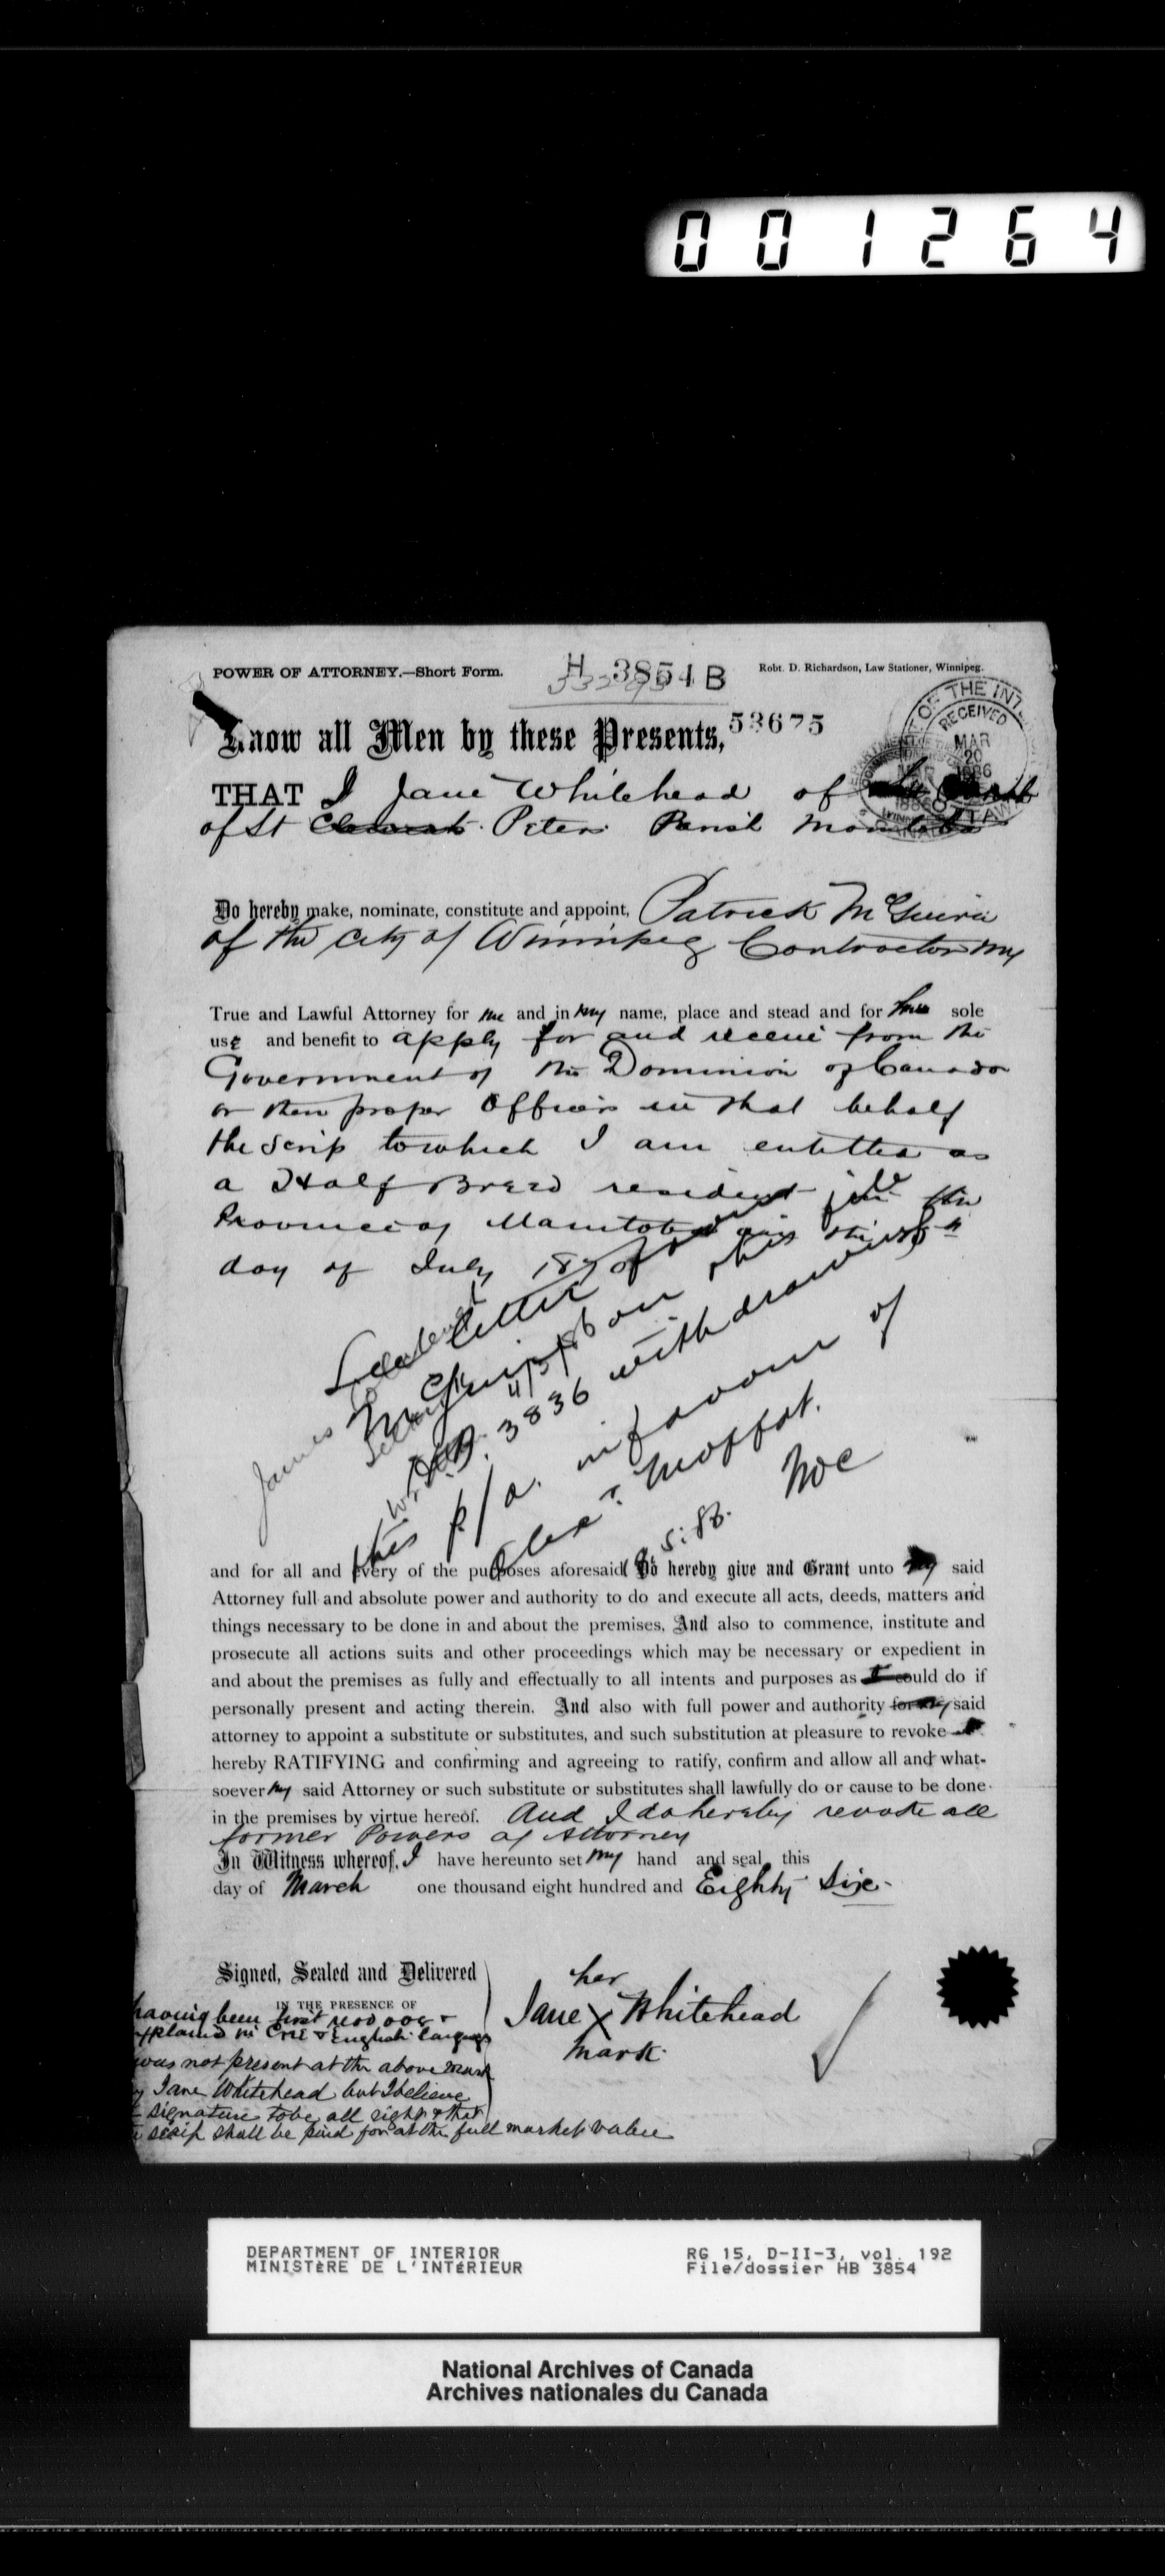 001264
POWER OF ATTORNEY.—Short Form.
H 3854 B
Robt. D. Richardson, Law Stationer, Winnipeg.
Know all Men by these Presents,
53675
RECEIVED
MAR
20
1886
THAT I Jane Whitehead of
of St Clements Peters Parish Manitoba
Do hereby make, nominate, constitute and appoint, Patrick McGuire
of the City of Winnipeg Contractor my
True and Lawful Attorney for me and in my name, place and stead and for sole
use and benefit to apply for and receive from the
Government of the Dominion of Canada
or their proper Officers in that behalf
the Scrip to which I am entitled as
a Half Breed resident in the
Province of Manitoba on the 15th
day of July 1870
See letter
on
H.B. 3836 withdrawing
this p/a. in favour of
Alexr. Moffat.
and for all and every of the purposes aforesaid Do hereby give and Grant unto my said
Attorney full and absolute power and authority to do and execute all acts, deeds, matters and
things necessary to be done in and about the premises, And also to commence, institute and
prosecute all actions suits and other proceedings which may be necessary or expedient in
and about the premises as fully and effectually to all intents and purposes as I could do if
personally present and acting therein. And also with full power and authority for my said
attorney to appoint a substitute or substitutes, and such substitution at pleasure to revoke
hereby RATIFYING and confirming and agreeing to ratify, confirm and allow all and what-
soever my said Attorney or such substitute or substitutes shall lawfully do or cause to be done
in the premises by virtue hereof. And I do hereby revoke all
former Powers of Attorney
In Witness whereof, I have hereunto set my hand and seal this
day of March one thousand eight hundred and Eighty Six
Signed, Sealed and Delivered
IN THE PRESENCE OF
having been first read over &
explained in Cree & English language
was not present at the above mark
Jane Whitehead but I believe
signature to be all right & that
scrip shall be paid for at the full market value
her
Jane X Whitehead
mark
DEPARTMENT OF INTERIOR
MINISTÈRE DE L'INTÉRIEUR
RG 15, D-II-3, vol. 192
File/dossier HB 3854
National Archives of Canada
Archives nationales du Canada